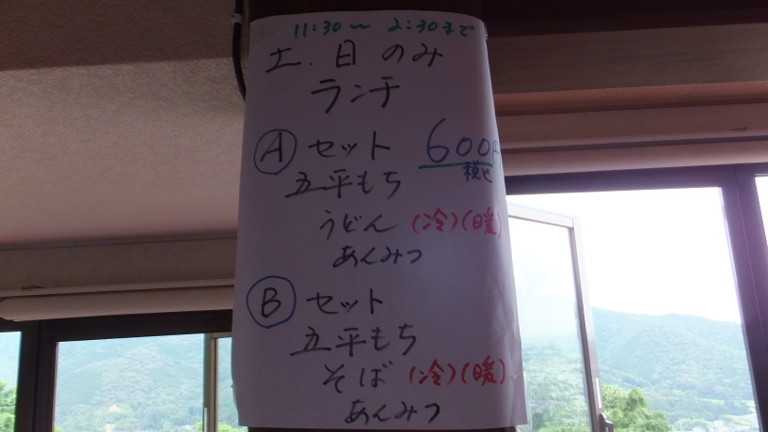 11:30〜 2:30まで
土.日のみ
ランチ
Ⓐセット 600円
税込
五平もち
うどん (冷)(暖)
あんみつ
Ⓑセット
五平もち
そば (冷)(暖)
あんみつ